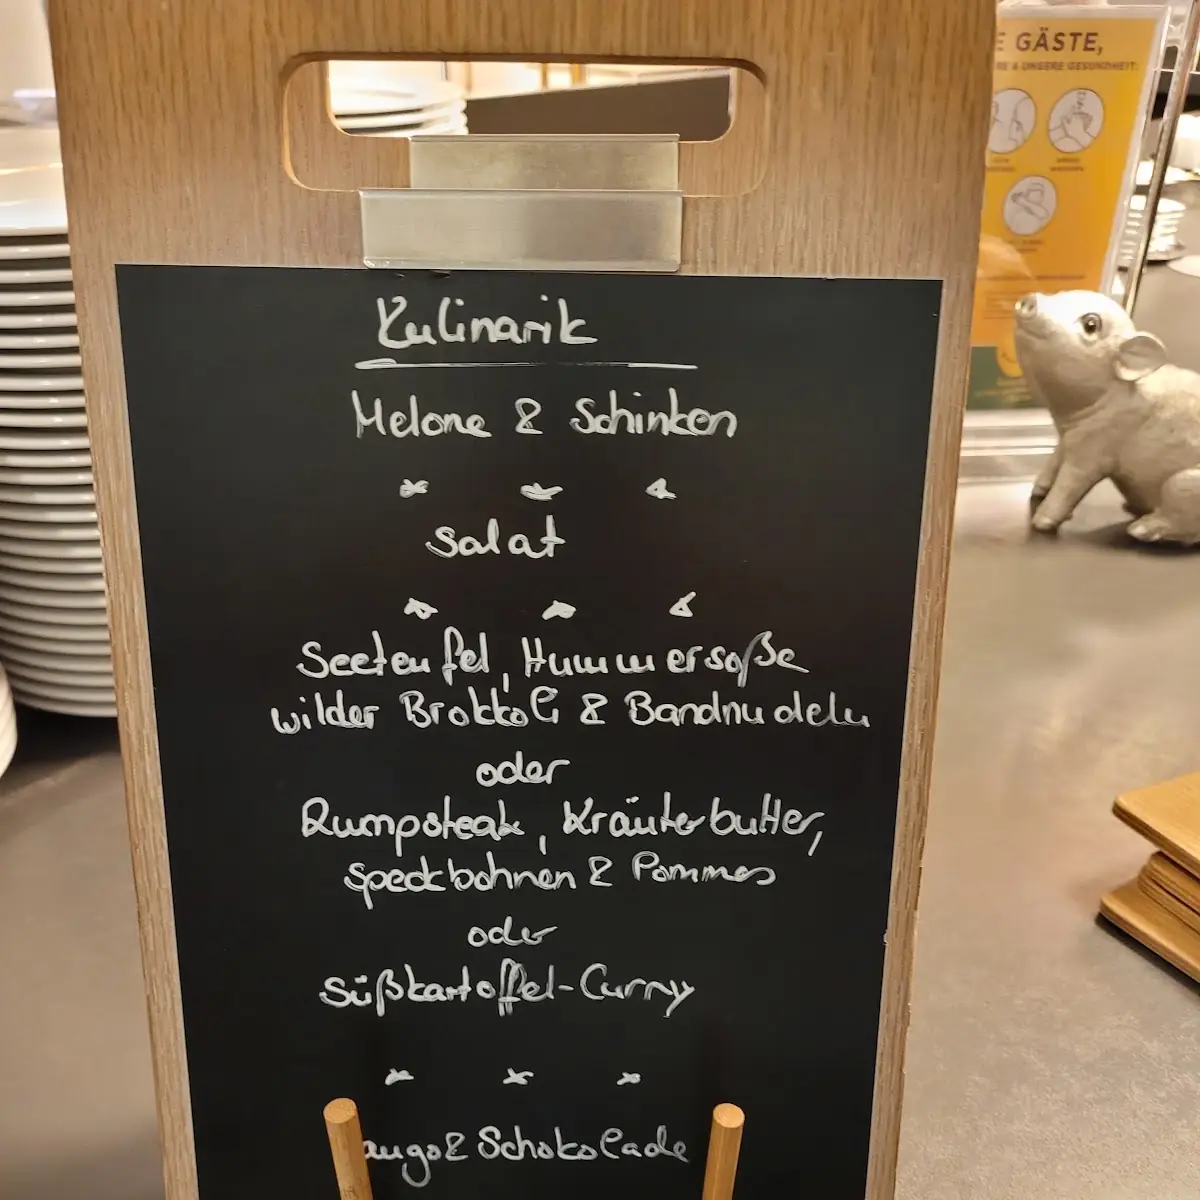 Kulinarik
Melone & Schinken
Salat
Seeteufel, Hummersoße
wilder Brokkoli & Bandnudeln
oder
Rumpsteak, Kräuterbutter,
Speckbohnen & Pommes
oder
Süßkartoffel-Curry
ango & Schokolade
E GÄSTE,
RE & UNSERE GESUNDHEIT: